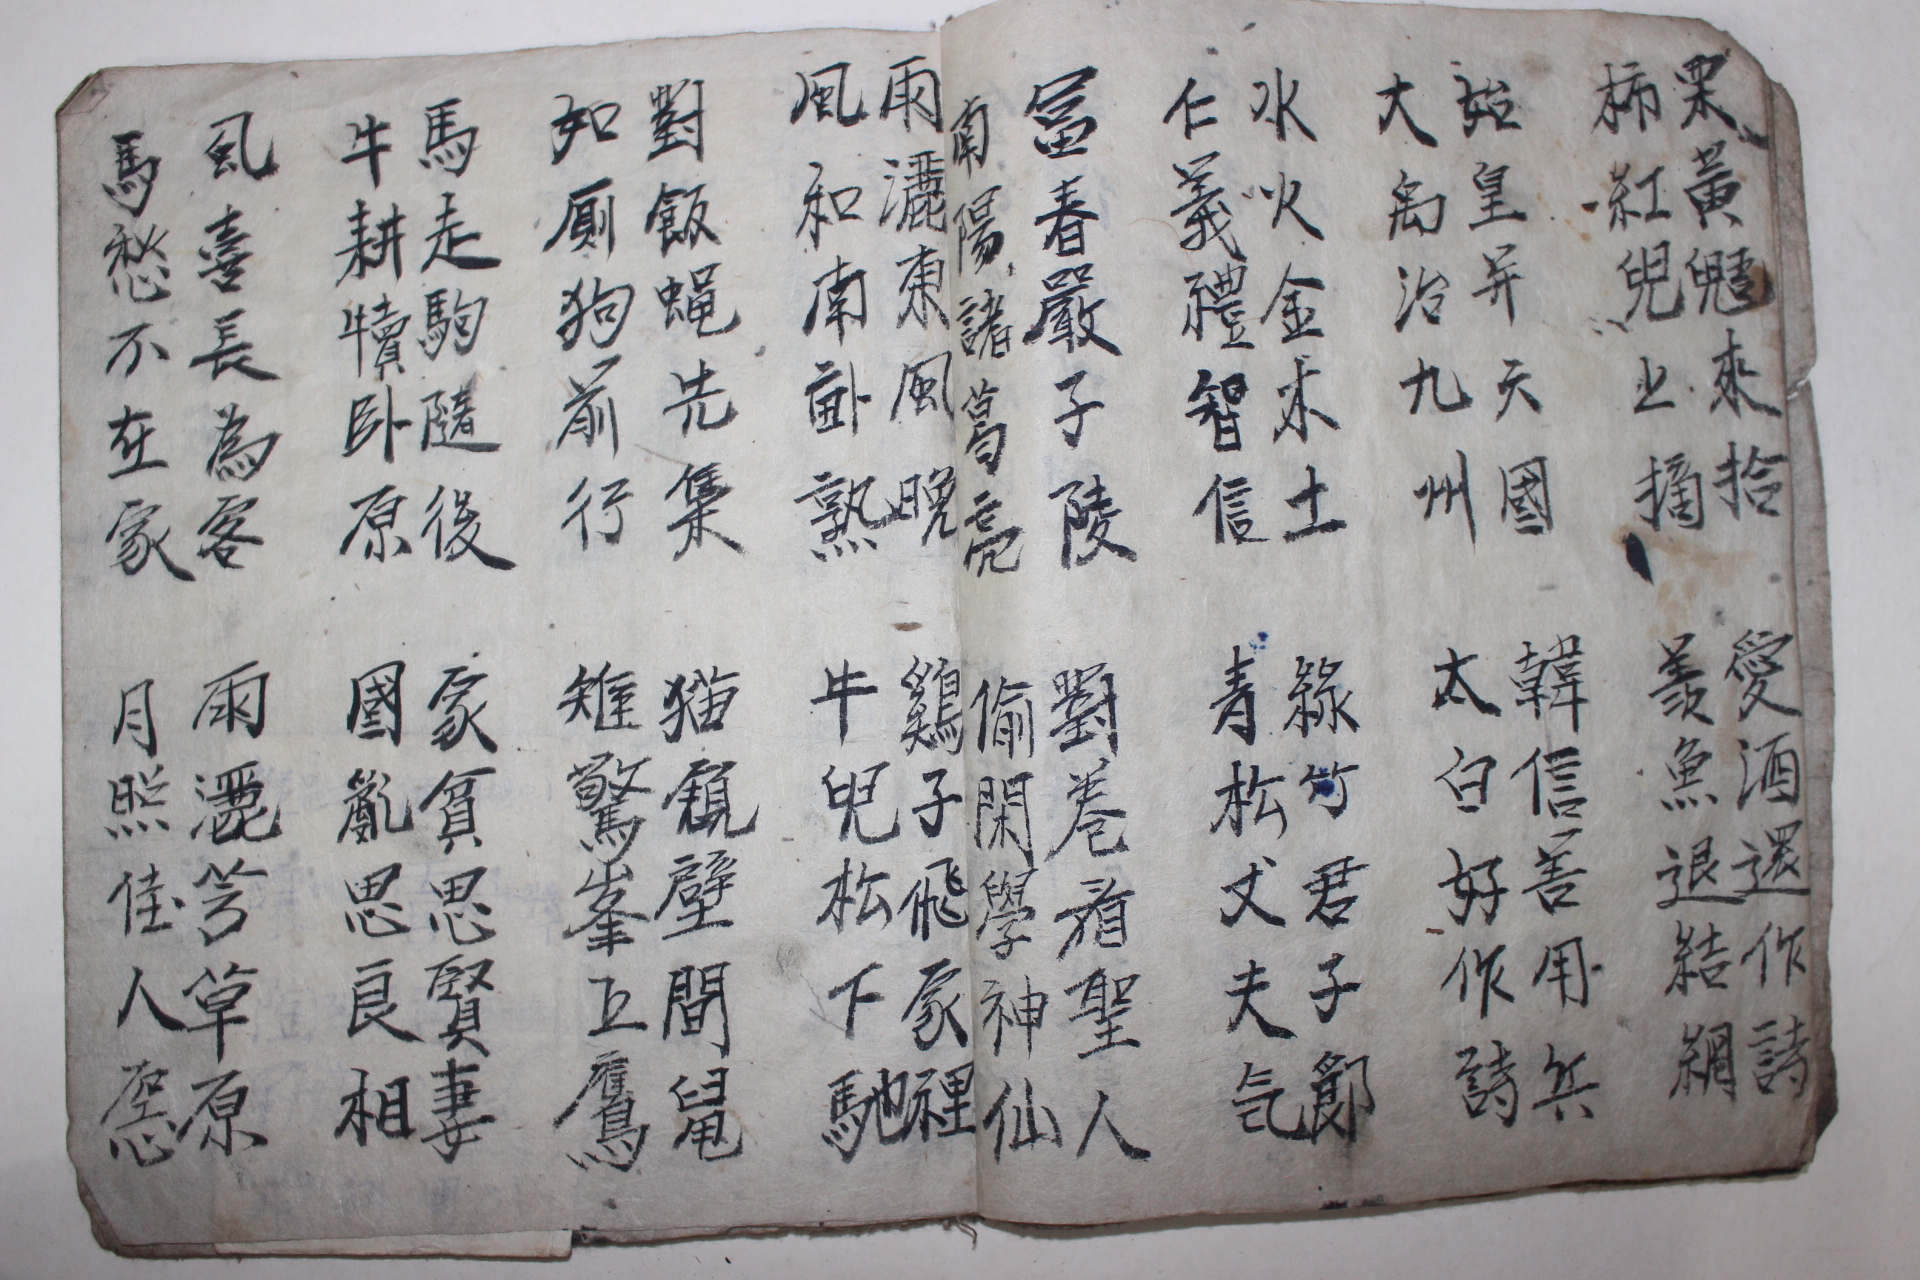 栗黃來拾
柿紅兒上摘
愛酒還作詩
羨魚退結網
始皇并天國
大禹治九州
韓信善用兵
太白好作詩
水火金木土
仁義禮智信
綠竹君子節
青松丈夫气
富春嚴子陵
南陽諸葛亮
對卷看聖人
偷閑學神仙
雨灑東風晚
風和南畝熟
鷄子飛家裡
牛兒松下馳
對飯蠅先集
如厠狗前行
猫窺壁間鼠
雉驚峯上鷹
馬走駒隨後
牛耕犢卧原
家貧思賢妻
國亂思良相
風喜長為客
馬愁不在家
雨灑芳草原
月照佳人窓